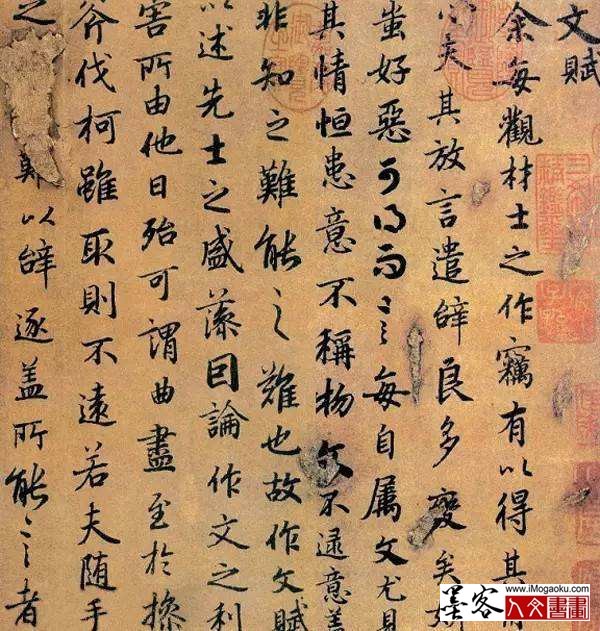 文賦
余每觀材士之作竊有以得其用
心夫其放言遣辝良多變矣妍
蚩好惡可得而言每自属文尤見
其情恒患意不稱物文不逮意盖
非知之難能之難也故作文賦
以述先士之盛藻因論作文之利
害所由他日殆可謂曲盡至於操
斧伐柯雖取則不遠若夫随手
之難以辝逐盖所能言者
墨客
www.iMogaoku.com
人文書畫